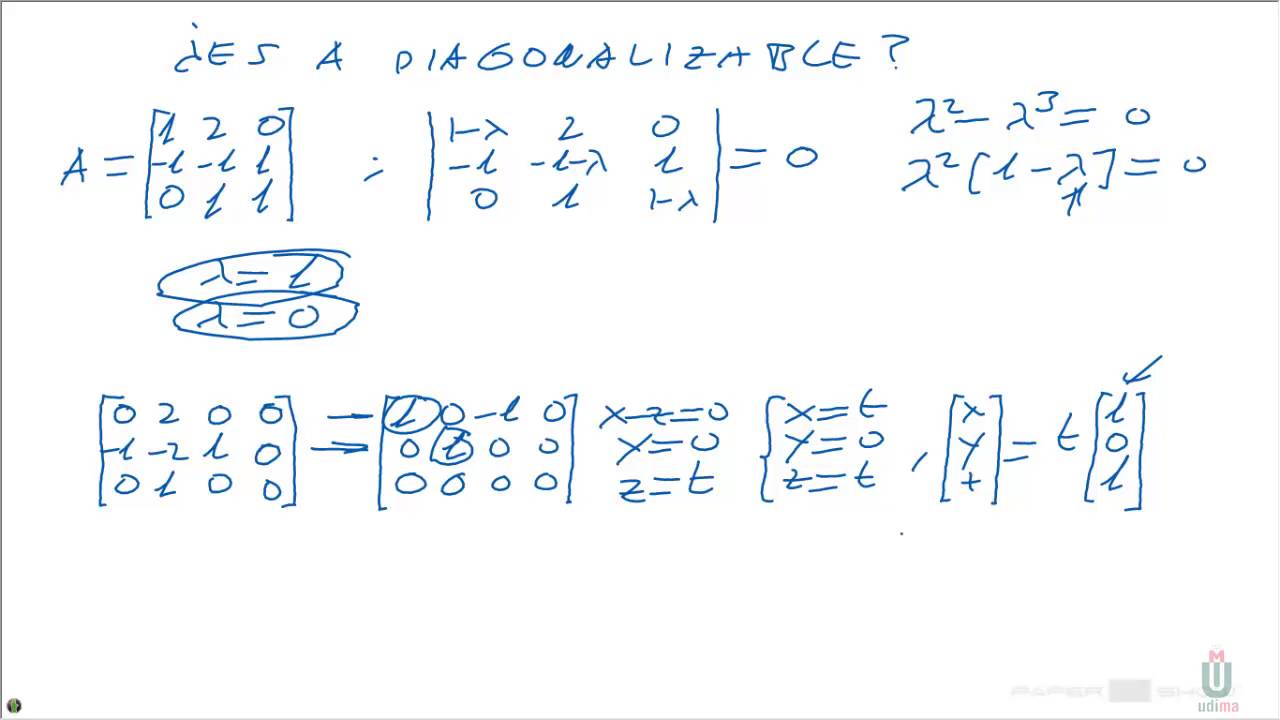 ¿ES A DIAGONALIZABLE?
A = [1 2 0; -1 -1 1; 0 1 1] ; |1-λ 2 0; -1 -1-λ 1; 0 1 1-λ| = 0
λ² - λ³ = 0
λ²[1 - λ] = 0
λ = 1
λ = 0
[0 2 0 0; -1 -2 1 0; 0 1 0 0] → [1 0 -1 0; 0 1 0 0; 0 0 0 0] x-z=0 y=0 z=t { x=t y=0 z=t , [x y t] = t [1 0 1]
PAPER SHOW
udima